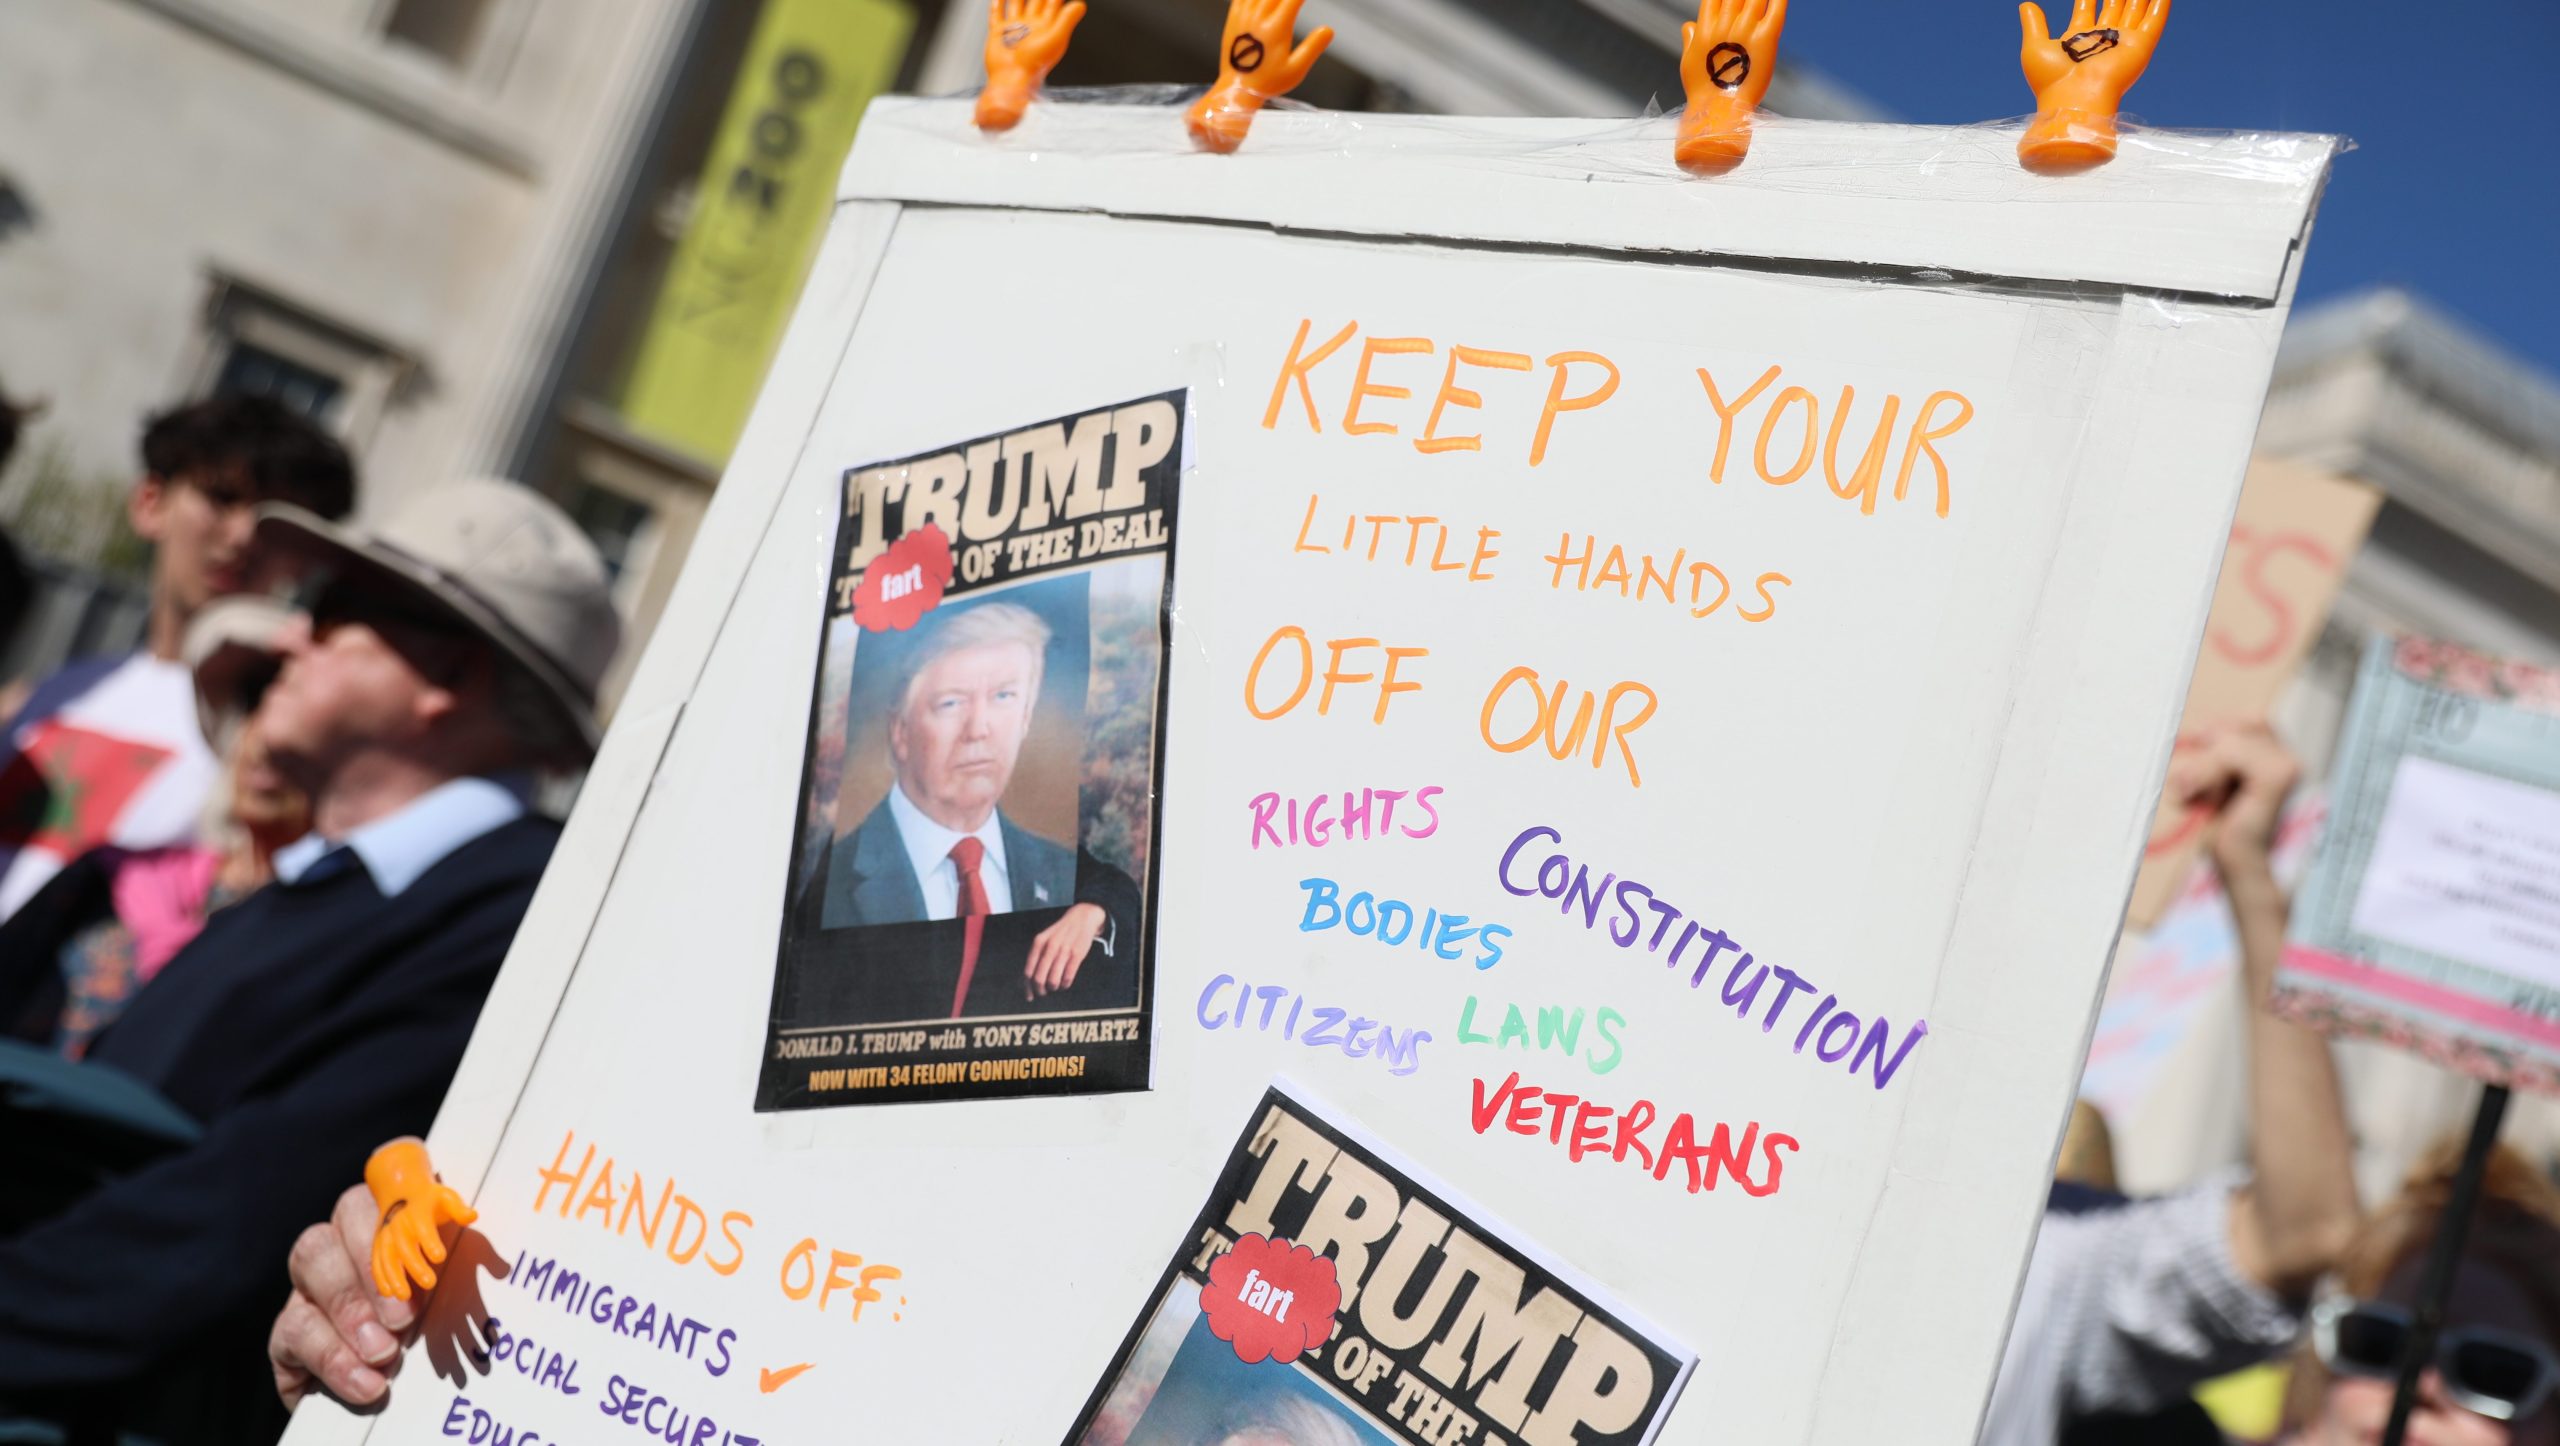 NG200
KEEP YOUR
LITTLE HANDS
OFF OUR
RIGHTS
CONSTITUTION
BODIES
CITIZENS
LAWS
VETERANS
TRUMP
fart
OF THE DEAL
DONALD J. TRUMP with TONY SCHWARTZ
NOW WITH 34 FELONY CONVICTIONS!
HANDS OFF:
IMMIGRANTS ✓
SOCIAL SECURIT
EDUC
TRUMP
fart
OF THE
TS
10